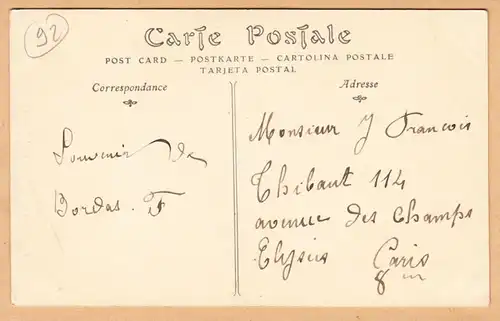 92
Carte Postale
POST CARD — POSTKARTE — CARTOLINA POSTALE
TARJETA POSTAL
Correspondance
Adresse
Souvenir de
Bordas. F
Monsieur J François
Thibaut 114
avenue des Champs
Elysées Paris
8em